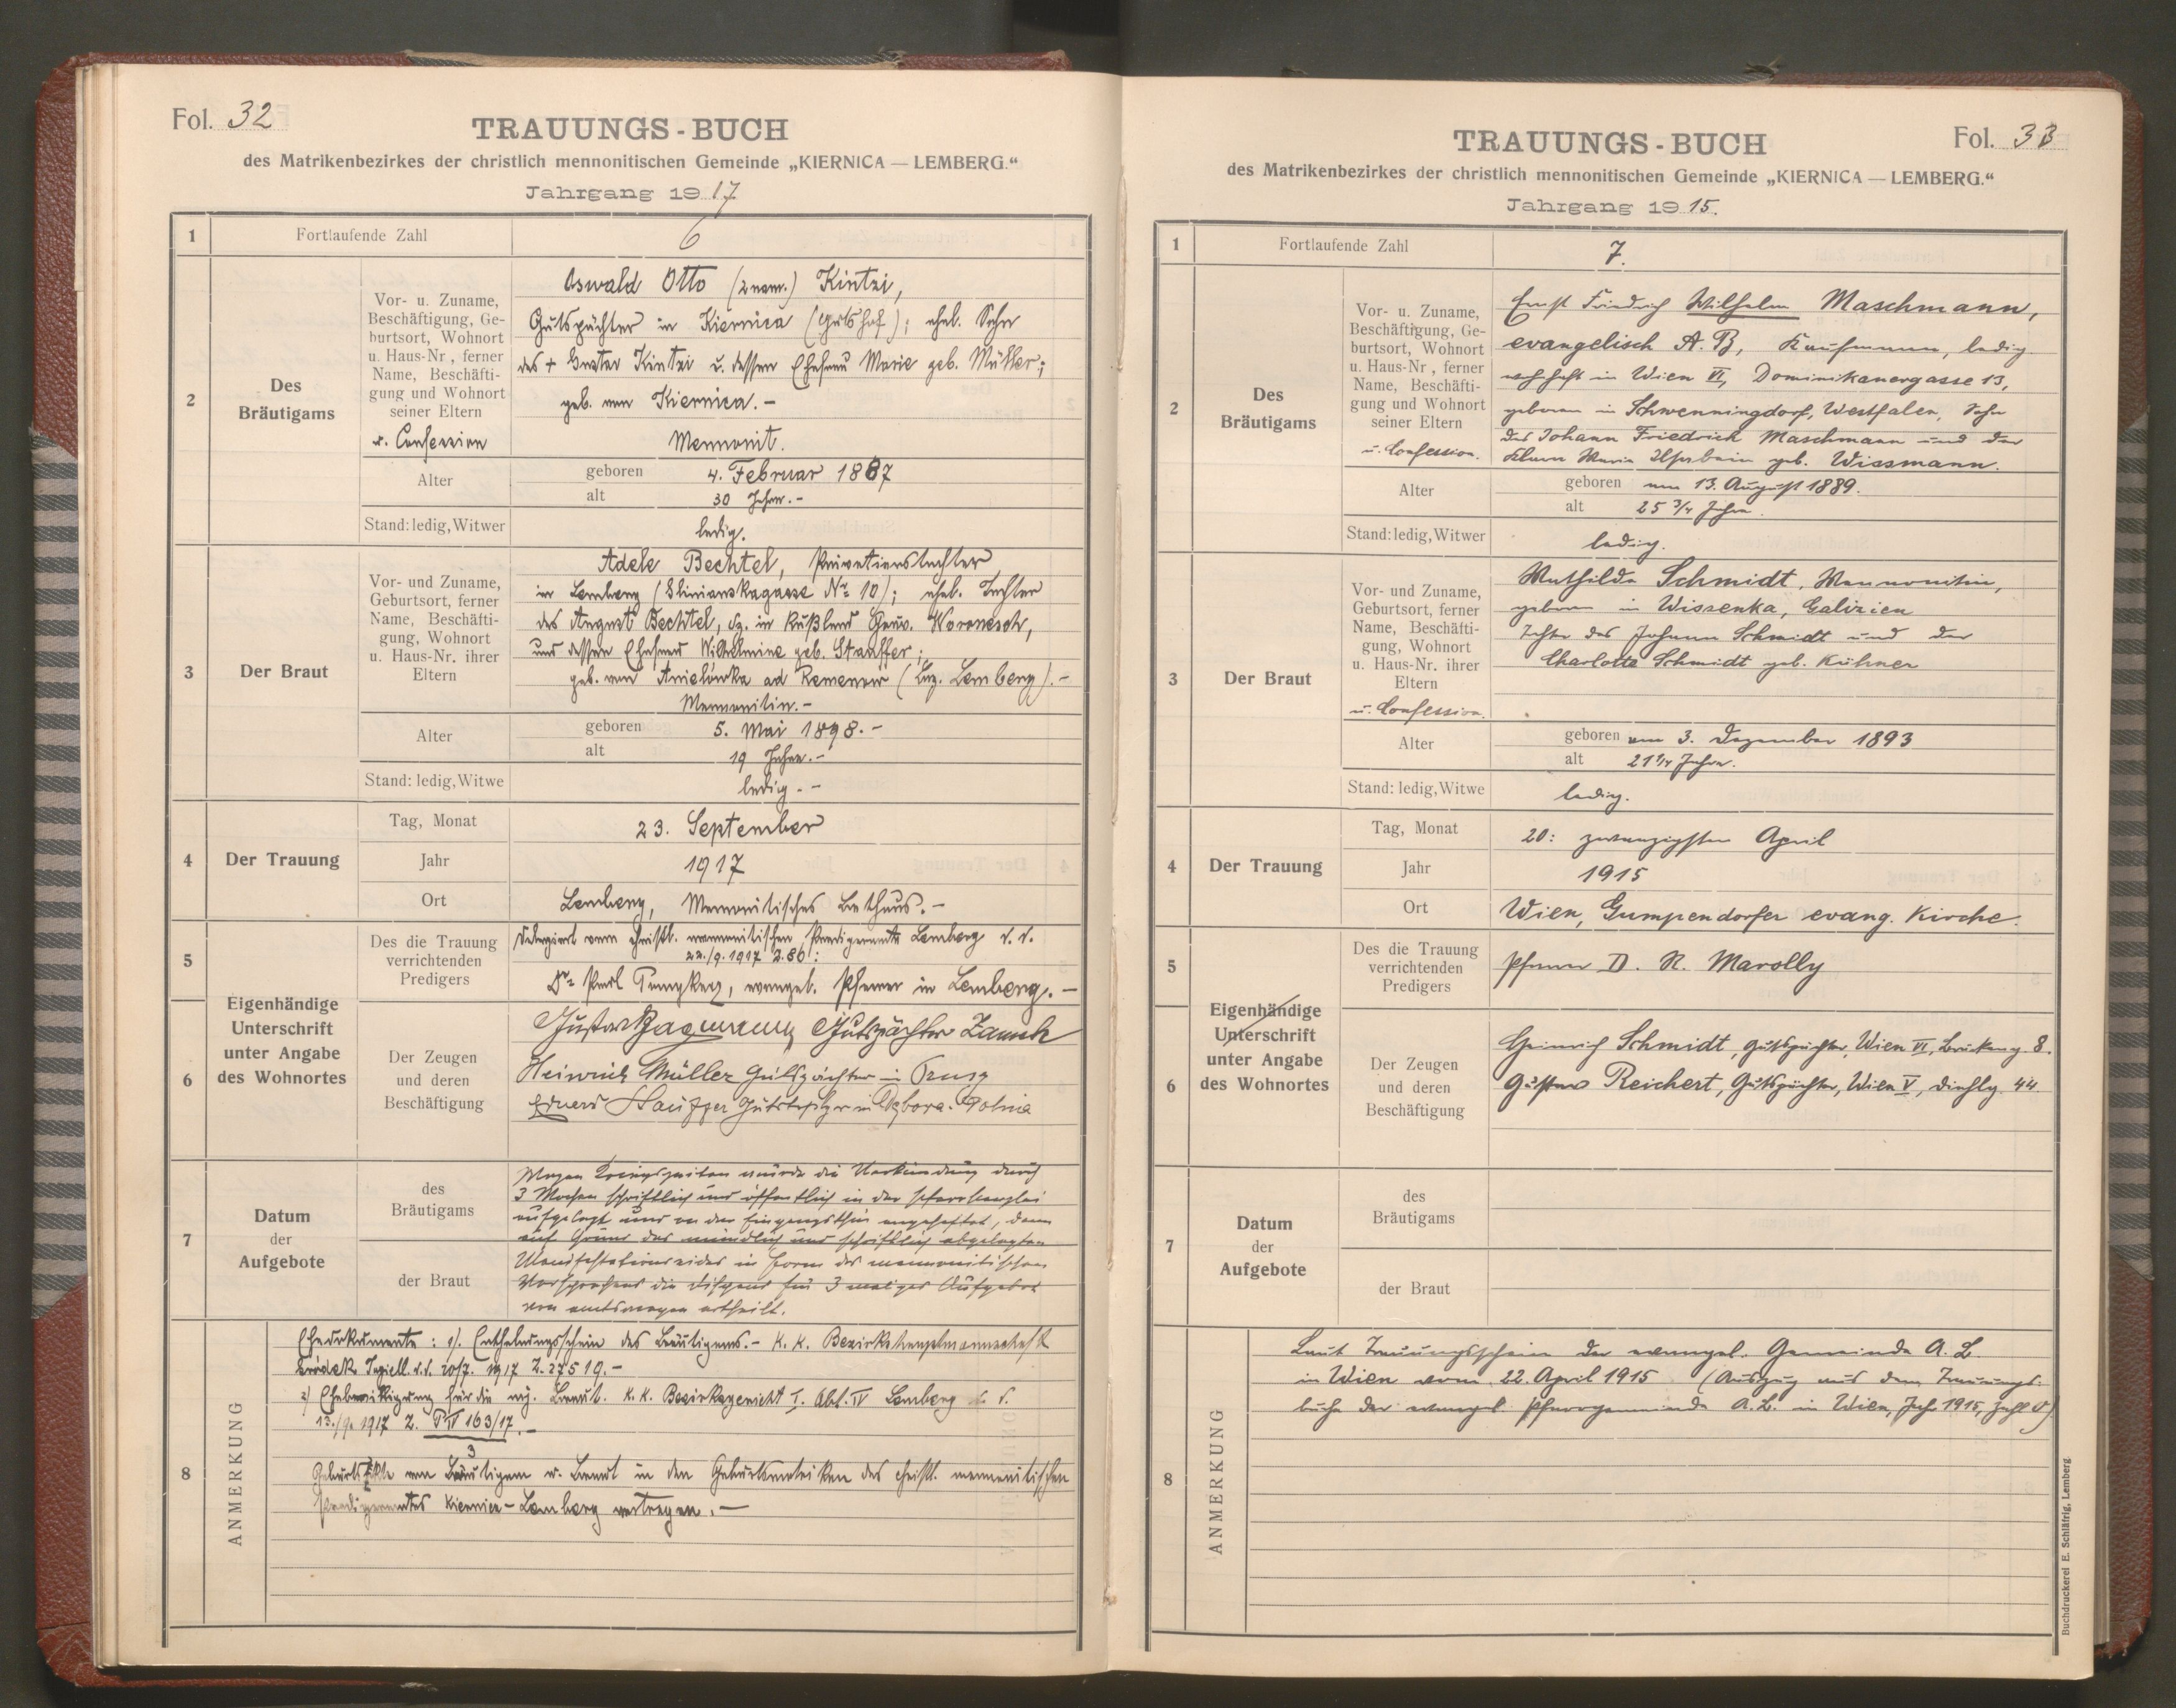 Fol. 32
TRAUUNGS-BUCH
des Matrikenbezirkes der christlich mennonitischen Gemeinde „KIERNICA — LEMBERG."
Jahrgang 1917.
1 Fortlaufende Zahl 6
2 Des Bräutigams
Vor- u. Zuname,
Beschäftigung, Ge-
burtsort, Wohnort
u. Haus-Nr, ferner
Name, Beschäfti-
gung und Wohnort
seiner Eltern
u. Confession
Oswald Otto (2nam.) Kintzi,
Gutspächter in Kiernica (Gutshof); ehel. Sohn
des + Gustav Kintzi u. dessen Ehefrau Marie geb. Müller;
geb. von Kiernica.-
Mennonit.
Alter
geboren 4. Februar 1887
alt 30 Jahre.-
Stand: ledig, Witwer ledig.
3 Der Braut
Vor- und Zuname,
Geburtsort, ferner
Name, Beschäfti-
gung, Wohnort
u. Haus-Nr. ihrer
Eltern
Adele Bechtel, Privatierstochter
in Lemberg (Glinianskagasse Nr 10); ehel. Tochter
des August Bechtel, dz. in Rußland Gouv. Woronesch,
und dessen Ehefrau Wilhelmine geb. Stauffer;
geb. von Anielówka ad Remenow (Bez. Lemberg).-
Mennonitin.-
Alter
geboren 5. Mai 1898.-
alt 19 Jahre.-
Stand: ledig, Witwe ledig.-
4 Der Trauung
Tag, Monat 23. September
Jahr 1917
Ort Lemberg, Mennonitisches Bethaus.-
5 Des die Trauung
verrichtenden
Predigers
Delegiert vom christl. mennonitischen Predigeramte Lemberg d. d.
22./9. 1917 Z. 86:
Dr Paul, evangel. Pfarrer in Lemberg.-
6 Eigenhändige
Unterschrift
unter Angabe
des Wohnortes
Der Zeugen
und deren
Beschäftigung
Gustav Gutspächter
Heinrich Müller Gutspächter in Prusy
Eduard Gutsbesitzer in
7 Datum
der
Aufgebote
des
Bräutigams
der Braut
Wegen Kriegszeiten wurde die Verkündung durch
3 Wochen schriftlich und öffentlich in der Pfarrkanzlei
aufgelegt und an der Eingangsthür angeheftet, dann
auf Grund des mündlich und schriftlich abgelegten
Manifestationseides in Form des mennonitischen
Versprechens die Dispens für 3 maliges Aufgebot
von amtswegen ertheilt.
8 ANMERKUNG
Ehedokumente: 1/. Enthebungsschein des Bräutigams.- K. K. Bezirkshauptmannschaft
Gródek Jagiell. d. d. 20/7. 1917 Z. 27519.-
2/ Ehebewilligung für die mj. Braut. K. K. Bezirksgericht I. Abt. IV Lemberg d. d.
13./9. 1917 Z. P IV 163/17.-
3
Geburtsakte von Bräutigam u. Braut in den Geburtsmatriken des christl. mennonitischen
Predigeramtes Kiernica-Lemberg vertragen.-
Fol. 33
TRAUUNGS-BUCH
des Matrikenbezirkes der christlich mennonitischen Gemeinde „KIERNICA — LEMBERG."
Jahrgang 1915.
1 Fortlaufende Zahl 7.
2 Des Bräutigams
Vor- u. Zuname,
Beschäftigung, Ge-
burtsort, Wohnort
u. Haus-Nr, ferner
Name, Beschäfti-
gung und Wohnort
seiner Eltern
u. Confession.
Ernst Friedrich Wilhelm Maschmann,
evangelisch A. B, Kaufmann, ledig
wohnhaft in Wien VI, Dominikanergasse 13,
geboren in Schwenningdorf, Westfalen, Sohn
des Johann Friedrich Maschmann und der
Maria geb. Wissmann.
Alter
geboren am 13. August 1889.
alt 25 3/4 Jahre.
Stand: ledig, Witwer ledig.
3 Der Braut
Vor- und Zuname,
Geburtsort, ferner
Name, Beschäfti-
gung, Wohnort
u. Haus-Nr. ihrer
Eltern
u. Confession.
Mathilde Schmidt, Mennonitin,
geboren in Wissenka, Galizien
Tochter des Johann Schmidt und der
Charlotte Schmidt geb. Kühner
Alter
geboren am 3. Dezember 1893
alt 21 1/4 Jahre.
Stand: ledig, Witwe ledig.
4 Der Trauung
Tag, Monat 20: zwanzigsten April
Jahr 1915
Ort Wien, Gumpendorfer evang. Kirche.
5 Des die Trauung
verrichtenden
Predigers
Pfarrer D. R. Marolly
6 Eigenhändige
Unterschrift
unter Angabe
des Wohnortes
Der Zeugen
und deren
Beschäftigung
Heinrich Schmidt, Gutspächter, Wien VI, 8.
Gustav Reichert, Gutspächter, Wien V, 44.
7 Datum
der
Aufgebote
des
Bräutigams
der Braut
8 ANMERKUNG
Laut Trauungsschein der evangel. Gemeinde A. B.
in Wien vom 22. April 1915 (Auszug aus dem Trauungs-
buche der evangel. Pfarrgemeinde A. B. in Wien, Jahr 1915, Zahl
Buchdruckerei E. Schläfrig, Lemberg